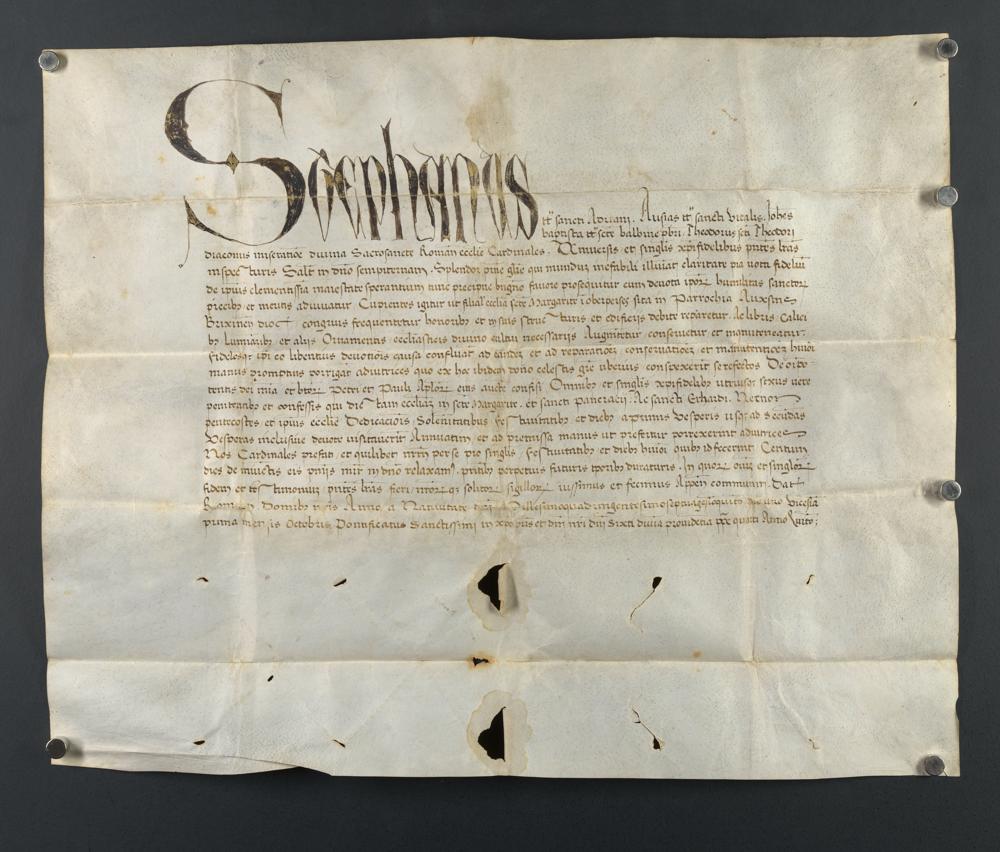 Stephanus tt̄ sancti Adriani. Ausias tt̄ sancti Vitalis. Joh̄es
baptista tt̄ scte balbine pbrī. Theodorus scī Theodori
diaconus miseratiōe diuina Sacrosancte Romañ ecclīe Cardinales. Vniuersis et singlis xp̄ifidelibus pñtes lr̄as
inspecturis Salt̄ in dño sempiternam. Splendor pñe glīe qui mundum ineffabili illuīat claritate pia uota fideliū
de ip̄ius clementissīa maiestate sperantium tunc precipue bīgno fauore prosequitur cum deuota ip̄oꝝ humilitas sanctoꝝ
precibꝫ et meritis adiuuatur. Cupientes igitur ut filial̄ ecclīa scte Margarite sita in Parrochia
Brixineñ dioc̄ congruis frequentetur honoribꝫ et in suis structuris et edificijs debite reparetur. Ac libris Calici
bꝫ Luminaribꝫ et alijs Ornamentis ecclīasticis diuino cultui necessarijs Augmētetur conseruetur et manuteneatur.
fidelesqꝫ xp̄i eo libentius deuotiōis causa confluāt ad eandē et ad reparationeꝫ conseruationeꝫ et manutentioneꝫ huiōi
manus promptius porrigāt adiutrices quo ex hoc ibidem dono celestis grē uberius conspexerīt se refectos. De oīpo
tentis dei mīa et btōꝝ Petri et Pauli Aplōꝝ eius aucte confisi Omnibꝫ et singlis xp̄ifidelibꝫ utriusqꝫ sexus uere
penitentibꝫ et confessis qui dictam ecclīaꝫ in scte Margarite. et sancti pancracij. Ac sancti Erhardi. Necnoñ
pentecostes et ip̄ius ecclīe Dedicaciōis Solēnitatibꝫ festiuitatibꝫ et diebꝫ a primis Vesperis usqꝫ ad secūdas
Vesperas inclusiue deuote uisitauerīt Annuatim et ad premissa manus ut prefertur porrexerint adiutrices
Nos Cardinales prefati et quilibet nr̄m per se pro singlis festiuitatibꝫ et diebꝫ huiōi quibꝫ id fecerint Centum
dies de iniunctis eis pñijs mīr in dño relaxamꝰ. pñtibꝫ perpetuis futuris tporibꝫ duraturis. In quoꝝ oīuꝫ et singloꝝ
fidem et testimoniuꝫ pñtes lr̄as fieri nr̄oꝝqꝫ solitoꝝ sigilloꝝ iussimus et fecimus Appeñ communiri. Dat̄
Rome in Domibꝫ nr̄is Anno a Natiuitate dñi Millesimoquadringentesimoseptuagesimoquīto die uero Vicesīa
prima mensis Octobris Pontificatus Sanctissimi in xp̄o p̄ris et dñi nr̄i dñi Sixti diuīa prouidētia p̄pe quarti Anno Quīto;